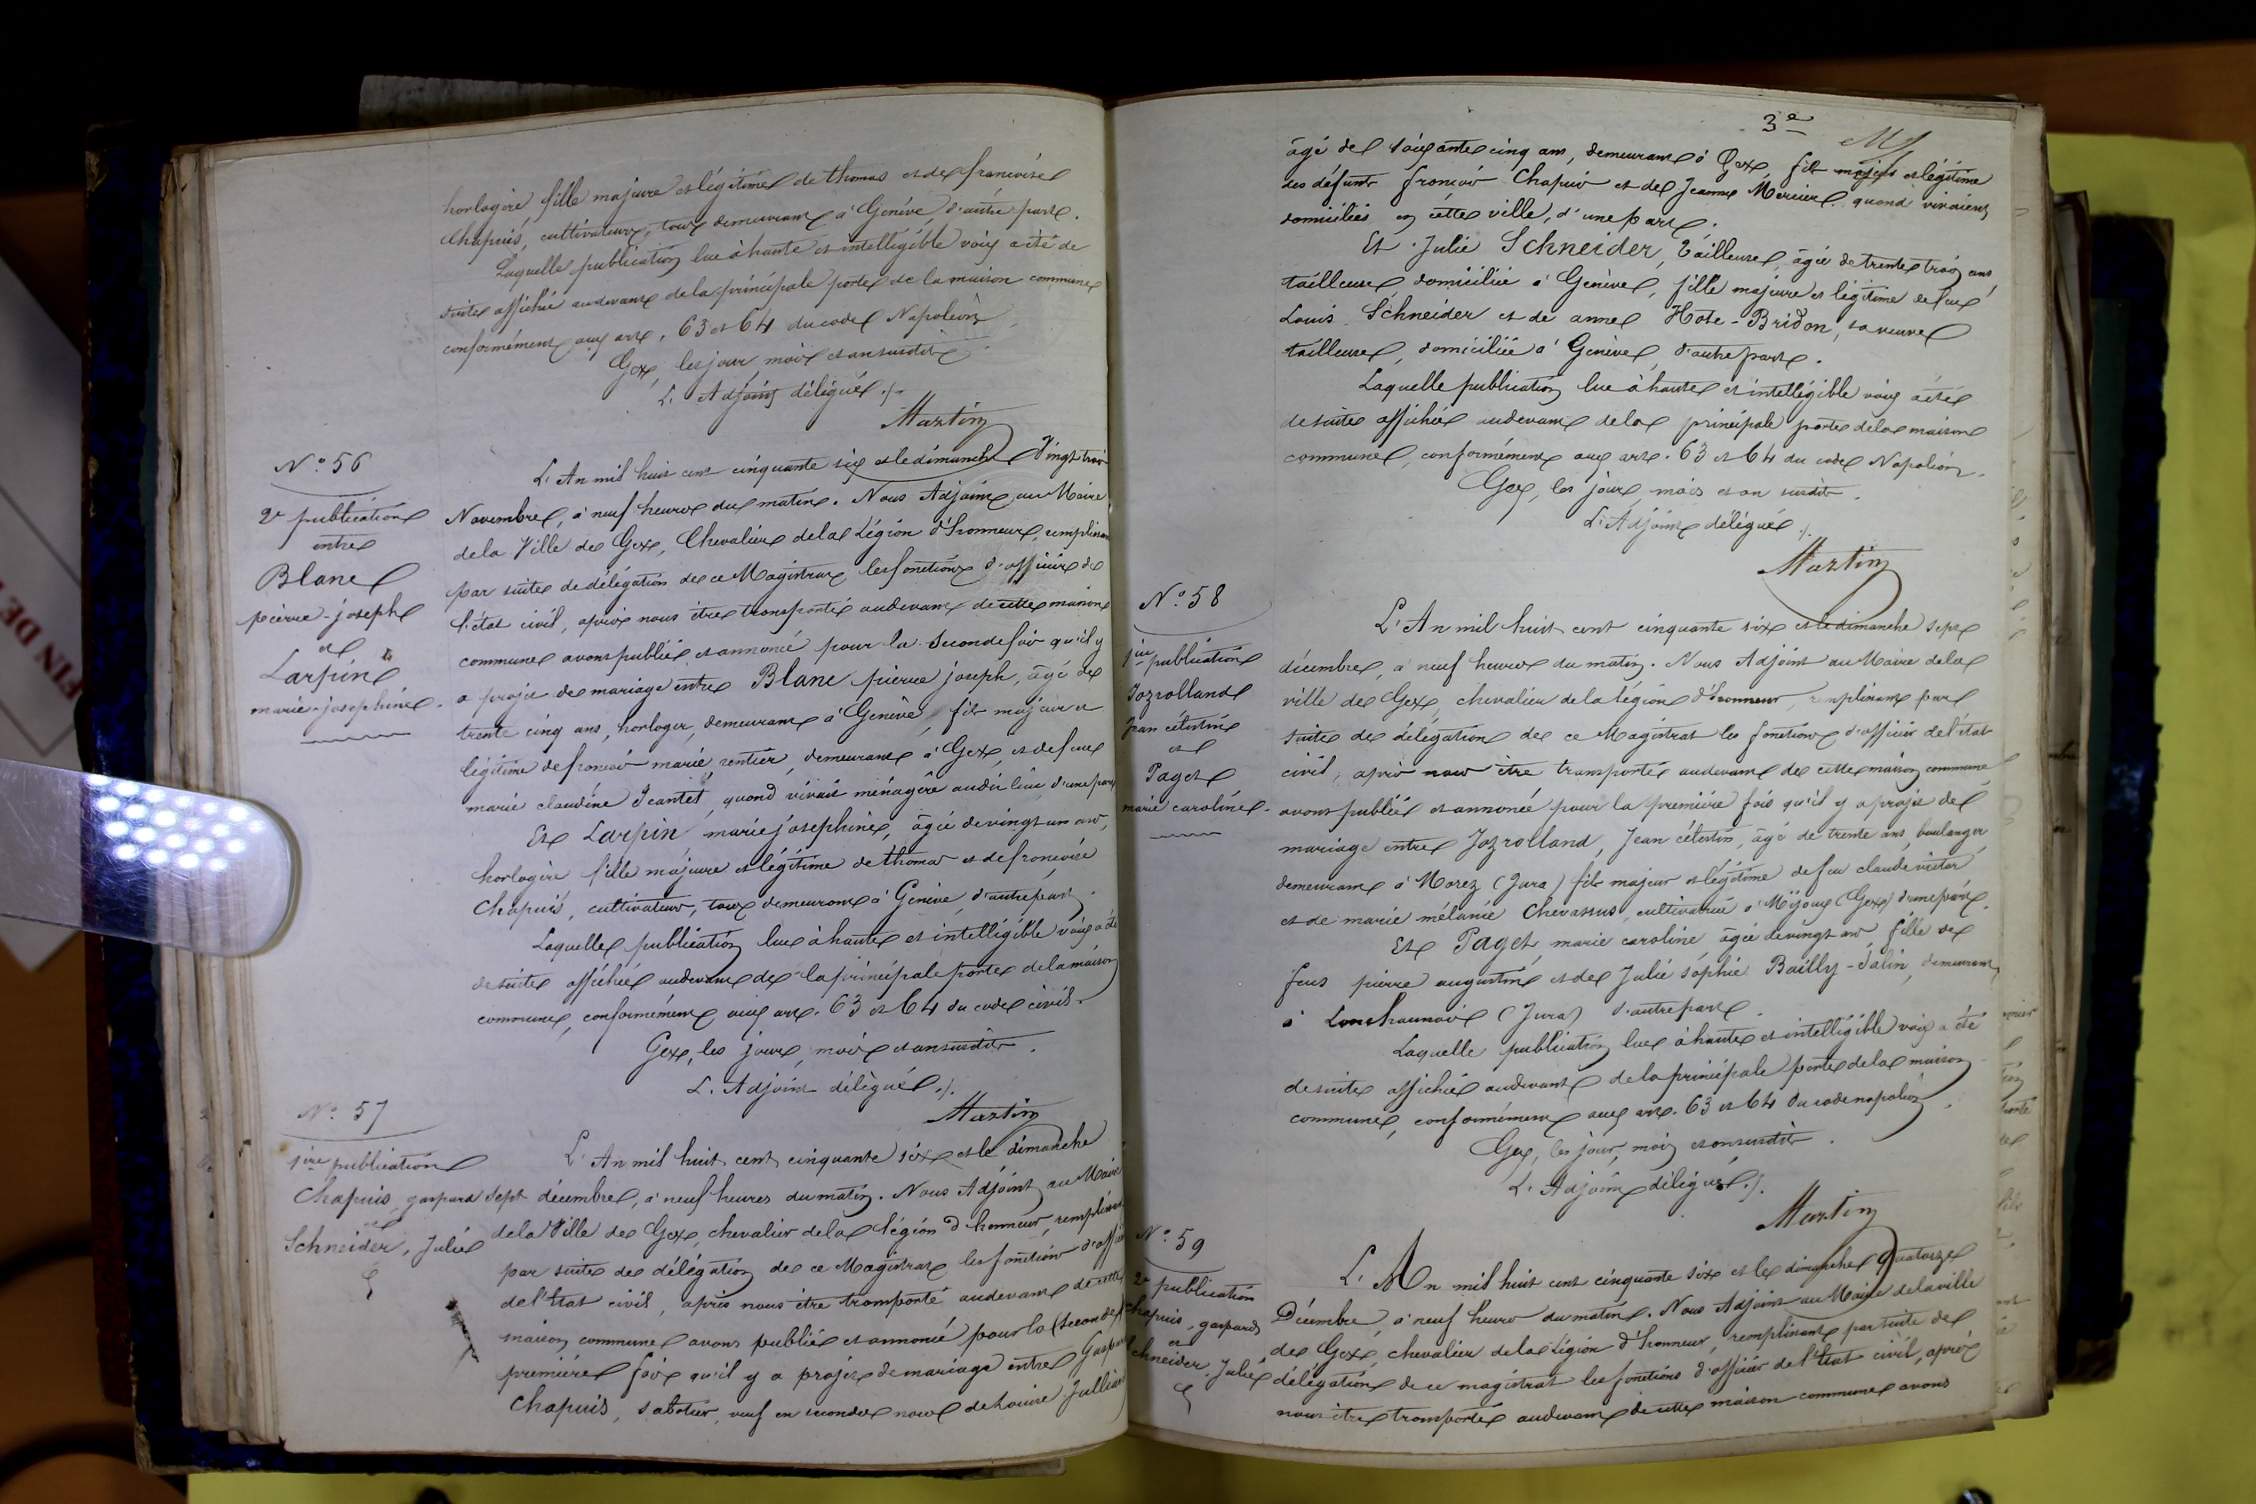 horlogère fille majeure et légitime de thomas et de françoise
Chapuis, cultivateurs, tous demeurant à Genève, d'autre part.
Laquelle publication lue à haute et intelligible voix a été de
suite affichée audevant de la principale porte de la maison commune
conformément aux art. 63 et 64 du code Napoléon.
Gex, les jour, mois et an susdits.
L'Adjoint délégué ./.
Martin
N° 56
2e publication
entre
Blanc
pierre-joseph
et
Larpin
marie-josephine.
L'An mil huit cent cinquante six et le dimanche Vingt trois
Novembre, à neuf heures du matin. Nous Adjoint au Maire
de la Ville de Gex, Chevalier de la Légion d'honneur, remplissant
par suite de délégation de ce Magistrat les fonctions d'officier de
l'état civil, après nous être transporté audevant de cette maison
commune avons publié et annoncé pour la Seconde fois qu'il y
a projet de mariage entre Blanc pierre joseph, âgé de
trente cinq ans, horloger, demeurant à Genève, fils majeur et
légitime de françois marie, rentier, demeurant à Gex, et de feue
marie claudine Jeantet, quand vivait ménagère audit lieu d'une part
Et Larpin marie josephine, âgée de vingt un ans,
horlogère fille majeure et légitime de thomas et de françoise
Chapuis, cultivateurs, tous demeurant à Genève, d'autre part.
Laquelle publication lue à haute et intelligible voix a été
de suite affichée audevant de la principale porte de la maison
commune, conformément aux art. 63 et 64 du code civil.
Gex, les jour, mois et an susdits.
L'Adjoint délégué ./.
Martin
N° 57
1ère publication
Chapuis, gaspard
et
Schneider, Julie
L'An mil huit cent cinquante six et le dimanche
sept décembre, à neuf heures du matin. Nous Adjoint au Maire
de la Ville de Gex, chevalier de la légion d'honneur, remplissant
par suite de délégation de ce Magistrat les fonctions d'officier
de l'Etat civil, après nous être transporté audevant de cette
maison commune avons publié et annoncé pour la (seconde)
première fois qu'il y a projet de mariage entre Gaspard
Chapuis, sabotier, veuf en secondes noces de Louise Julliard
3e
âgé de soixante cinq ans, demeurant à Gex, fils majeur et légitime
des défunts françois Chapuis et de Jeanne Mercier quand vivaient
domiciliés en cette ville, d'une part.
Et Julie Schneider, Tailleuse, âgée de trente trois ans,
tailleuse domiciliée à Genève, fille majeure et légitime de feu
Louis Schneider et de anne Hote-Bridon, sa veuve
tailleuse, domiciliée à Genève, d'autre part.
Laquelle publication lue à haute et intelligible voix a été
de suite affichée audevant de la principale porte de la maison
commune, conformément aux art. 63 et 64 du code Napoléon.
Gex, les jour mois et an susdits.
L'Adjoint délégué ./.
Martin
N° 58
1ère publication
Jozrolland
Jean célestin
et
Paget
marie caroline.
L'An mil huit cent cinquante six et le dimanche sept
décembre, à neuf heures du matin. Nous Adjoint au Maire de la
ville de Gex, chevalier de la légion d'honneur, remplissant par
suite de délégation de ce Magistrat les fonctions d'officier de l'état
civil, après nous être transporté audevant de cette maison commune
avons publié et annoncé pour la première fois qu'il y a projet de
mariage entre Jozrolland, Jean célestin, âgé de trente ans, boulanger
demeurant à Morez (Jura) fils majeur et légitime de feu claude victor,
et de marie mélanie Chevassus, cultivatrice à Mijoux (Gex) d'une part.
Et Paget, marie caroline âgée de vingt ans, fille de
feus pierre augustin et de Julie sophie Bailly-Salin, demeurant
à Longchaumois (Jura) d'autre part.
Laquelle publication lue à haute et intelligible voix a été
de suite affichée audevant de la principale porte de la maison
commune, conformément aux art. 63 et 64 du code napoléon.
Gex, les jour, mois et an susdits.
L'Adjoint délégué ./.
Martin
N° 59
2e publication
Chapuis, gaspard
et
Schneider Julie
L'An mil huit cent cinquante six et le dimanche quatorze
Décembre, à neuf heures du matin. Nous Adjoint au Maire de la ville
de Gex, chevalier de la Légion d'honneur, remplissant par suite de
délégation de ce magistrat les fonctions d'officier de l'Etat civil, après
nous être transporté audevant de cette maison commune avons
FIN DE